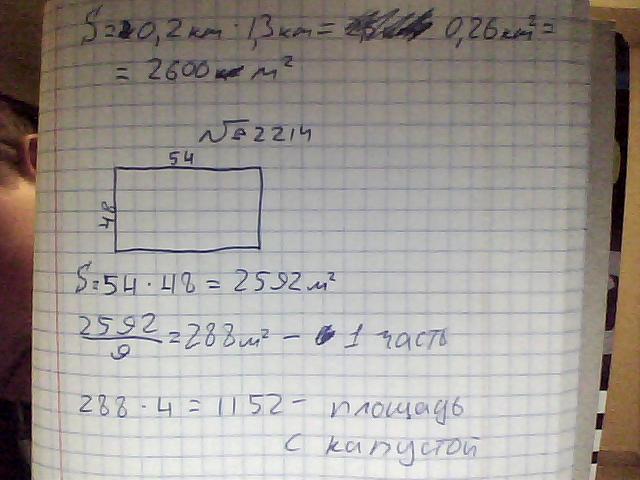 S = 0,2 км · 1,3 км = 0,26 км² =
= 2600 м²
№ 2214
54
48
S = 54 · 48 = 2592 м²
2592/9 = 288 м² – 1 часть
288 · 4 = 1152 – площадь
с капустой